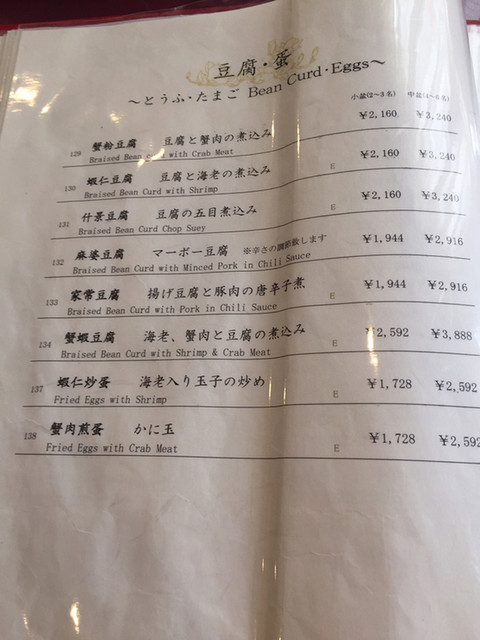 豆腐・蛋
～とうふ・たまご Bean Curd・Eggs～
小盆(2～3名) 中盆(4～6名)
129 蟹粉豆腐 豆腐と蟹肉の煮込み ¥2,160 ¥3,240
Braised Bean Curd with Crab Meat
130 蝦仁豆腐 豆腐と海老の煮込み E ¥2,160 ¥3,240
Braised Bean Curd with Shrimp
131 什景豆腐 豆腐の五目煮込み E ¥2,160 ¥3,240
Braised Bean Curd Chop Suey
132 麻婆豆腐 マーボー豆腐 ※辛さの調節致します ¥1,944 ¥2,916
Braised Bean Curd with Minced Pork in Chili Sauce
133 家常豆腐 揚げ豆腐と豚肉の唐辛子煮 E ¥1,944 ¥2,916
Braised Bean Curd with Pork in Chili Sauce
134 蟹蝦豆腐 海老、蟹肉と豆腐の煮込み E ¥2,592 ¥3,888
Braised Bean Curd with Shrimp & Crab Meat
137 蝦仁炒蛋 海老入り玉子の炒め E ¥1,728 ¥2,592
Fried Eggs with Shrimp
138 蟹肉煎蛋 かに玉 E ¥1,728 ¥2,592
Fried Eggs with Crab Meat